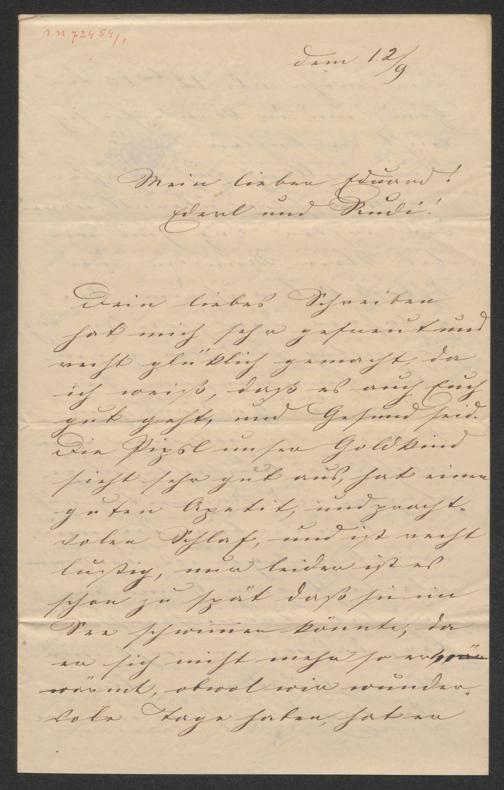 I.N. 72454/1
dem 12/9
Mein lieber Eduard!
Ederl und Rudi!
Dein liebes Schreiben
hat mich sehr gefreut und
recht glücklich gemacht, da
ich weiß, daß es auch Euch
gut geht, und Gesund seid.
Die Pipsl unser Goldkind
sieht sehr gut aus, hat einen
guten Apetit, und pracht-
volen Schlaf, und ist recht
lustig, nur leider ist es
schon zu spät daß sie im
See schwimen könnte, da
er sich nicht mehr so er
wärmt, obwol wir wunder-
vole Tage haben, hat er